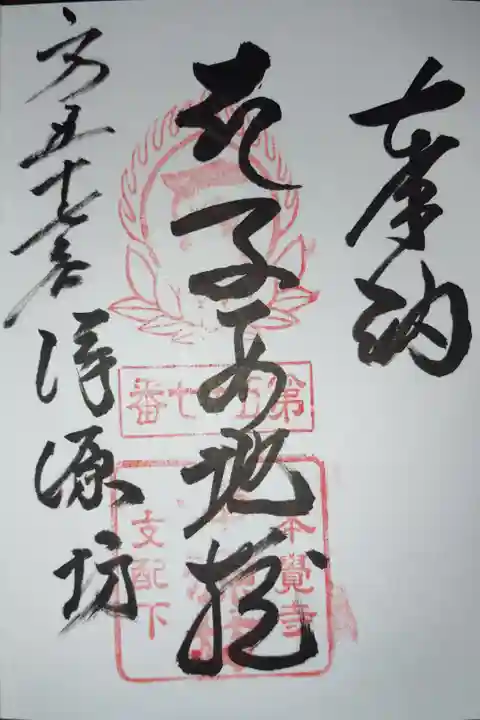 奉納
子安地蔵
第五十七番 淨源坊
第五十七番
本覺寺
支配下